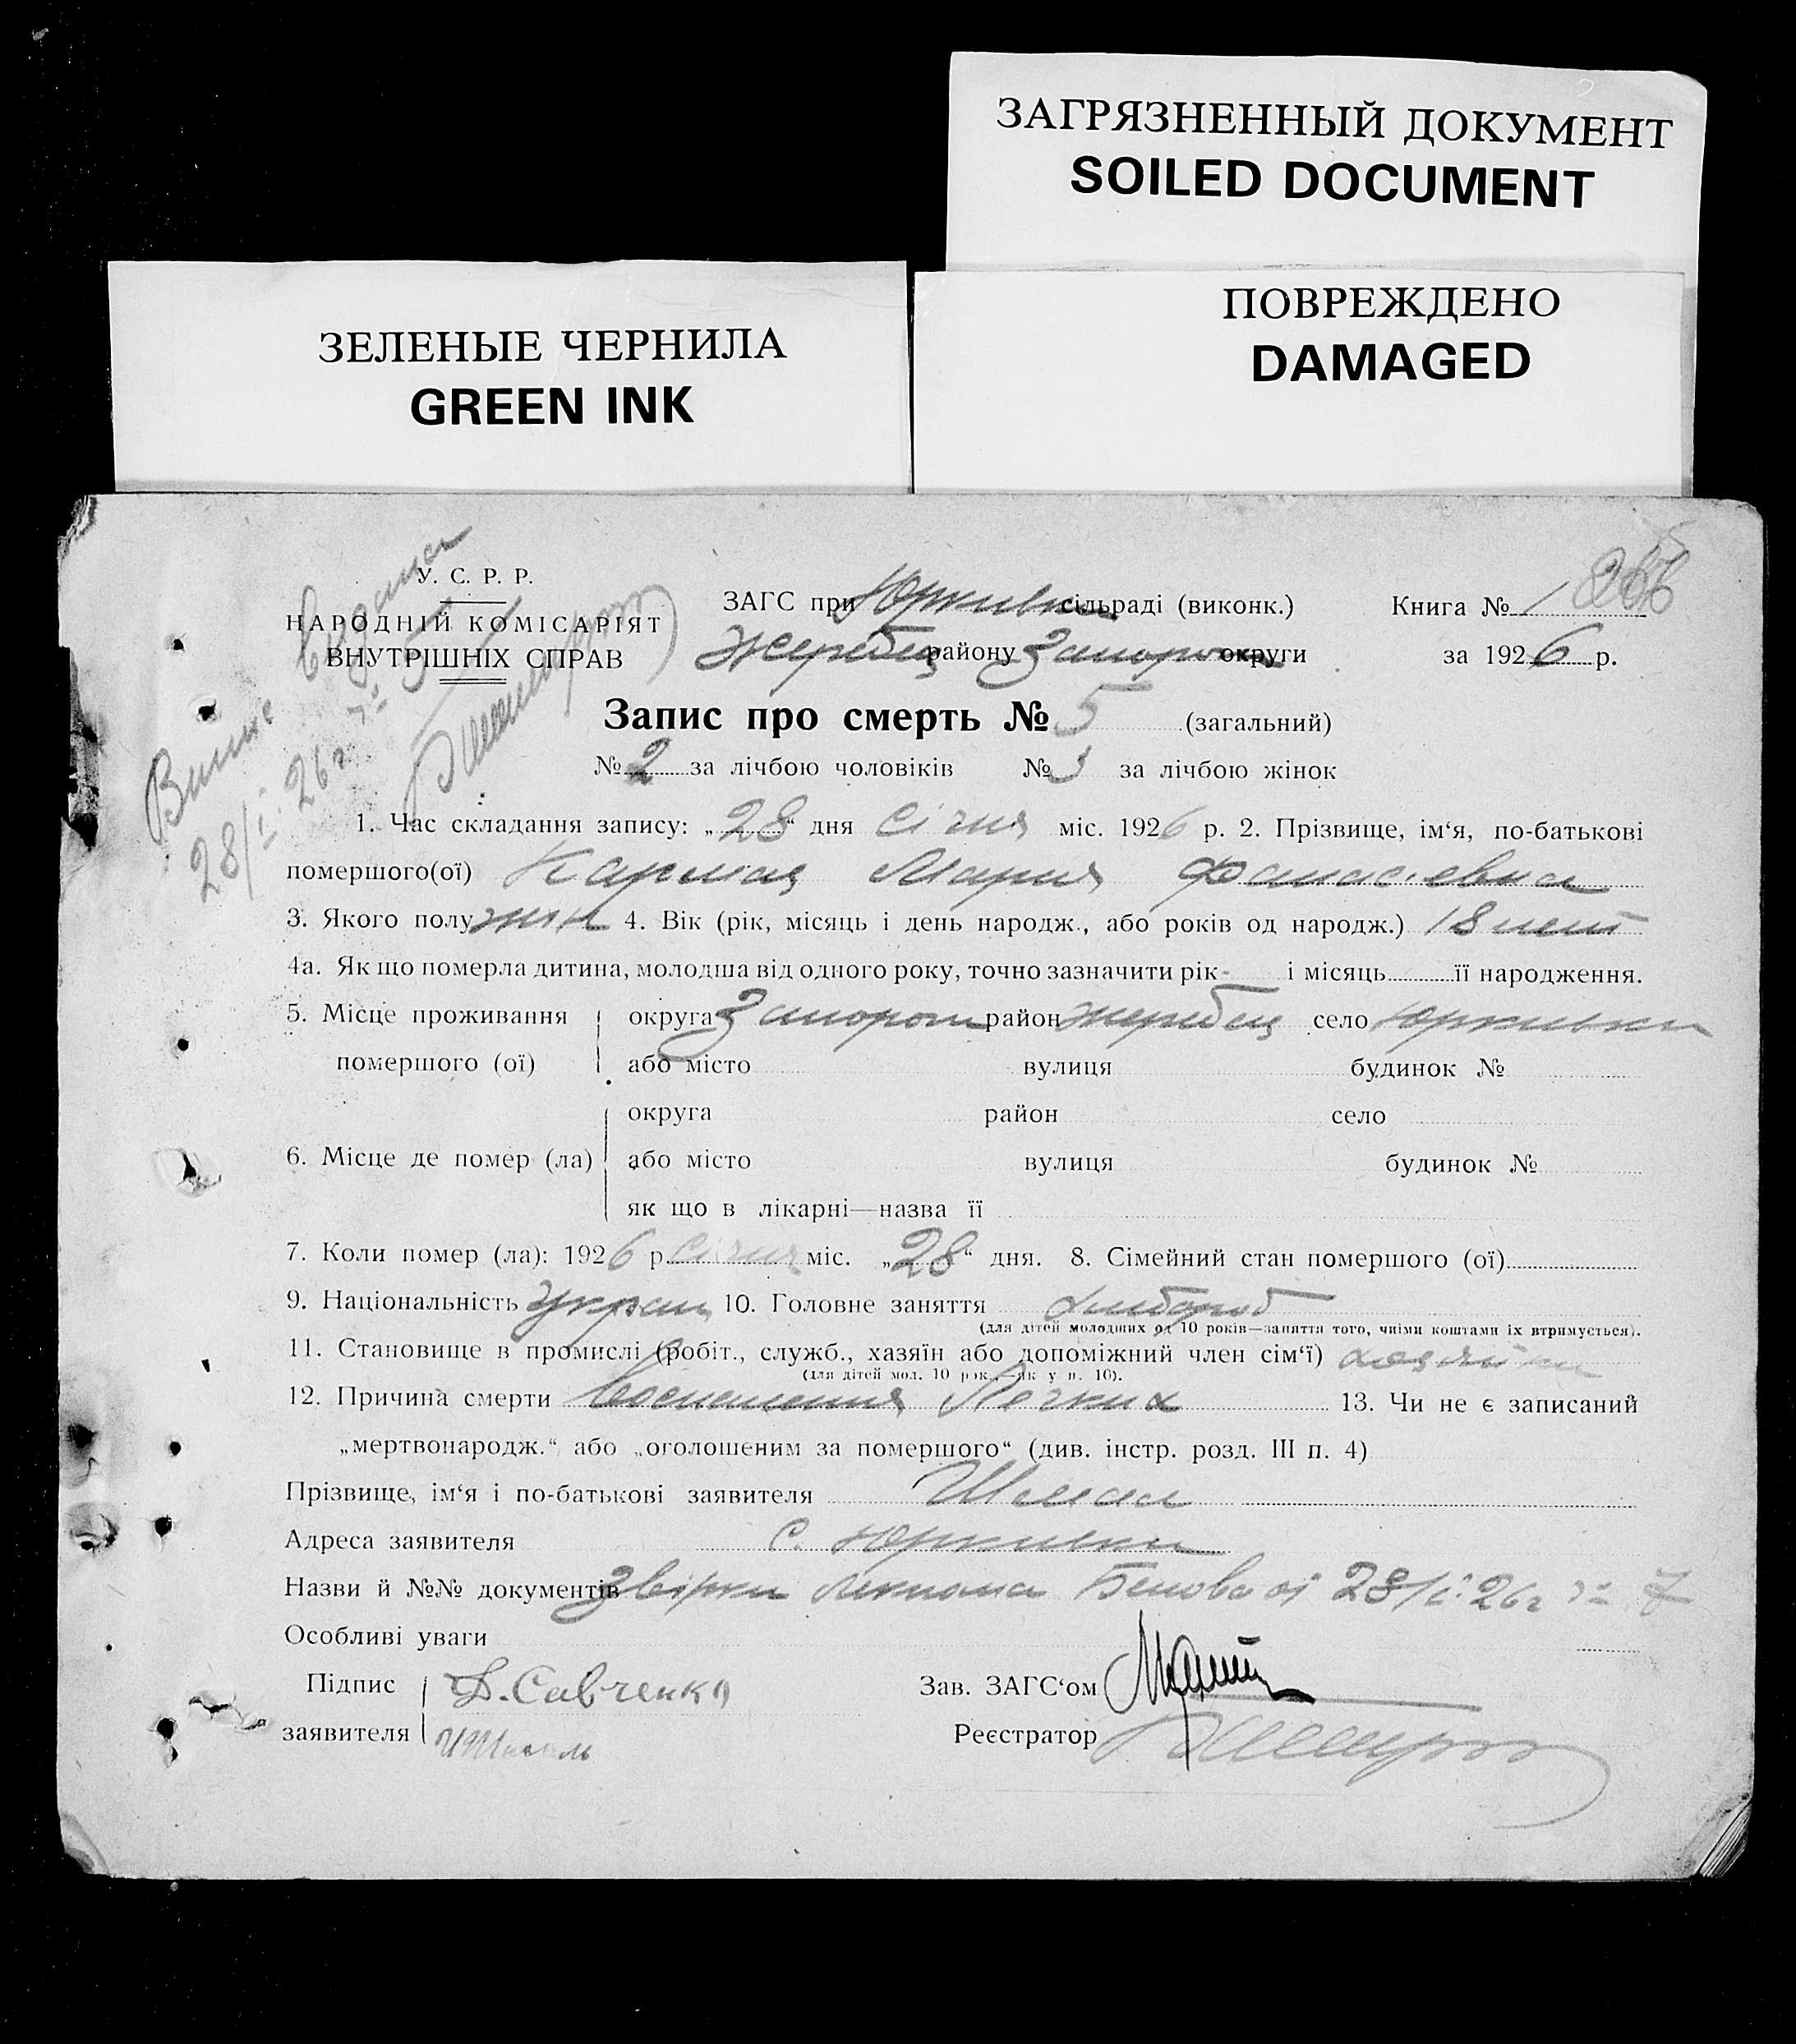 ЗАГРЯЗНЕННЫЙ ДОКУМЕНТ
SOILED DOCUMENT
ЗЕЛЕНЫЕ ЧЕРНИЛА
GREEN INK
ПОВРЕЖДЕНО
DAMAGED
У. С. Р. Р.
НАРОДНІЙ КОМІСАРІЯТ
ВНУТРІШНІХ СПРАВ
28/I 26 г.
ЗАГС при Юркивки сільраді (виконк.) Книга № 1
Жеребец району Запорож округи за 1926 р.
Запис про смерть № 5 (загальний)
№ 2 за лічбою чоловіків № 3 за лічбою жінок
1. Час складання запису: „28“ дня Січня міс. 1926 р. 2. Прізвище, ім‘я, по-батькові
помершого(ої) Кармая Мария Фанасіевна
3. Якого полу жін 4. Вік (рік, місяць і день народж., або років од народж.) 18 лет
4а. Як що померла дитина, молодша від одного року, точно зазначити рік - і місяць її народження.
5. Місце проживання округа Запорож район Жеребец село Юркивки
помершого (ої) або місто вулиця будинок №
округа район село
6. Місце де помер (ла) або місто вулиця будинок №
як що в лікарні—назва її
7. Коли помер (ла): 1926 р. Січня міс. „28“ дня. 8. Сімейний стан помершого (ої)
9. Національність Украин 10. Головне заняття хлибороб
(для дітей молодших од 10 років—заняття того, чиїми коштами їх втримується).
11. Становище в промислі (робіт., служб., хазяїн або допоміжний член сім‘ї) хозяйки
(для дітей мол. 10 рок.—як у п. 10).
12. Причина смерти Воспаления Легких 13. Чи не є записаний
„мертвонародж.“ або „оголошеним за помершого“ (див. інстр. розд. III п. 4)
Прізвище, ім‘я і по-батькові заявителя
Адреса заявителя с. Юркивки
Назви й №№ документів 28/I 26 г № 7
Особливі уваги
Підпис Д. Савченко Зав. ЗАГС‘ом
заявителя Реєстратор